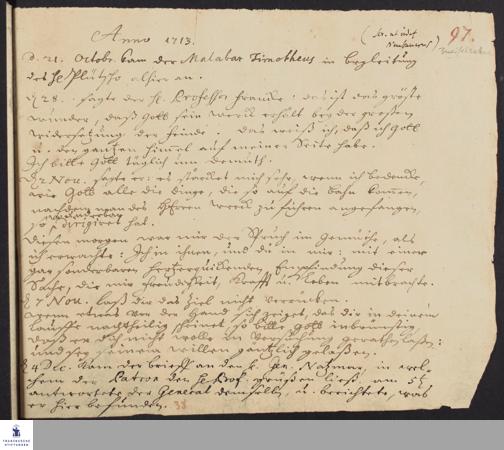 Anno 1713.
97.
d. 21. Octobr. kam der Malabar Timotheus in begleitung
des H. Plütscho alhier an.
d. 28. sagte der H. Professor Francke: das ist das gröste
wunder, daß Gott sein werck erhält bey der großen
widersetzung der feinde. das weiß ich, daß ich Gott
u. den gantzen himel auf meiner Seite habe.
Ich bitte Gott täglich um demuth.
d. 2 Nov. sagte er: es stärcket mich sehr, wenn ich bedencke,
wie Gott alle die dinge, die so auf die bahn komen,
nachdem man des HErren werck zu führen angefangen,
so wunderbar dirigiret hat.
Diesen morgen war mir der Spruch im Gemüthe, als
ich erwachte: Ich in ihnen, und du in mir: mit einer
gar sonderbaren hertzerquickenden Empfindung dieser
Sache, die mir freudigkeit, Krafft u. leben mitbrachte.
d. 7 Nov. laß dir das Ziel nicht verrücken.
wenn etwas vor der Hand sich zeiget, das dir in deinem
lauffe nachtheilig scheinet, so bitte Gott inbrünstig,
daß er dich nicht wolle in Versuchung gerathen laßen:
und sey seinem willen gäntzlich gelaßen.
d. 4 Dec. kam der brieff an den H. Gen. Natzmer, in wel-
chem der Patron den H. Prof. grüßen ließ, am 5t
antwortete der General demselben, u. berichtete, was
er hier befunden.
38
FRANCKESCHE
STIFTUNGEN